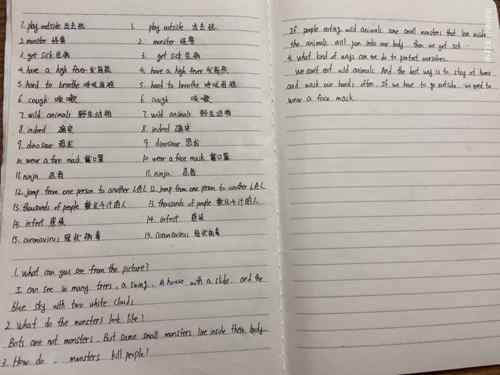 1. play outside 出去玩 1. play outside 出去玩
2. monster 怪兽 2. monster 怪兽
3. get sick 生病 3. get sick 生病
4. have a high fever 发高烧 4. have a high fever 发高烧
5. hard to breathe 呼吸困难 5. hard to breathe 呼吸困难
6. cough 咳嗽 6. cough 咳嗽
7. wild animals 野生动物 7. wild animals 野生动物
8. indeed 确实 8. indeed 确实
9. dinosaur 恐龙 9. dinosaur 恐龙
10. wear a face mask 戴口罩 10. wear a face mask 戴口罩
11. ninja 忍者 11. ninja 忍者
12. jump from one person to another 人传人 12. jump from one person to another 人传人
13. thousands of people 数以千计的人 13. thousands of people 数以千计的人
14. infect 感染 14. infect 感染
15. coronavirus 冠状病毒 15. coronavirus 冠状病毒
1. What can you see from the picture?
I can see so many trees, a swing, a house with a slide and the
blue sky with two white clouds.
2. What do the monsters look like?
Bats are not monsters. But some small monsters live inside their body.
3. How do monsters kill people?
If people eating wild animals some small monsters that live inside
the animals will jump into our body then we get sick.
4. What kind of ways can we do to protect ourselves.
We can't eat wild animals. And the best way is to stay at home
and wash our hands often. If we have to go outside, we need to
wear a face mask.